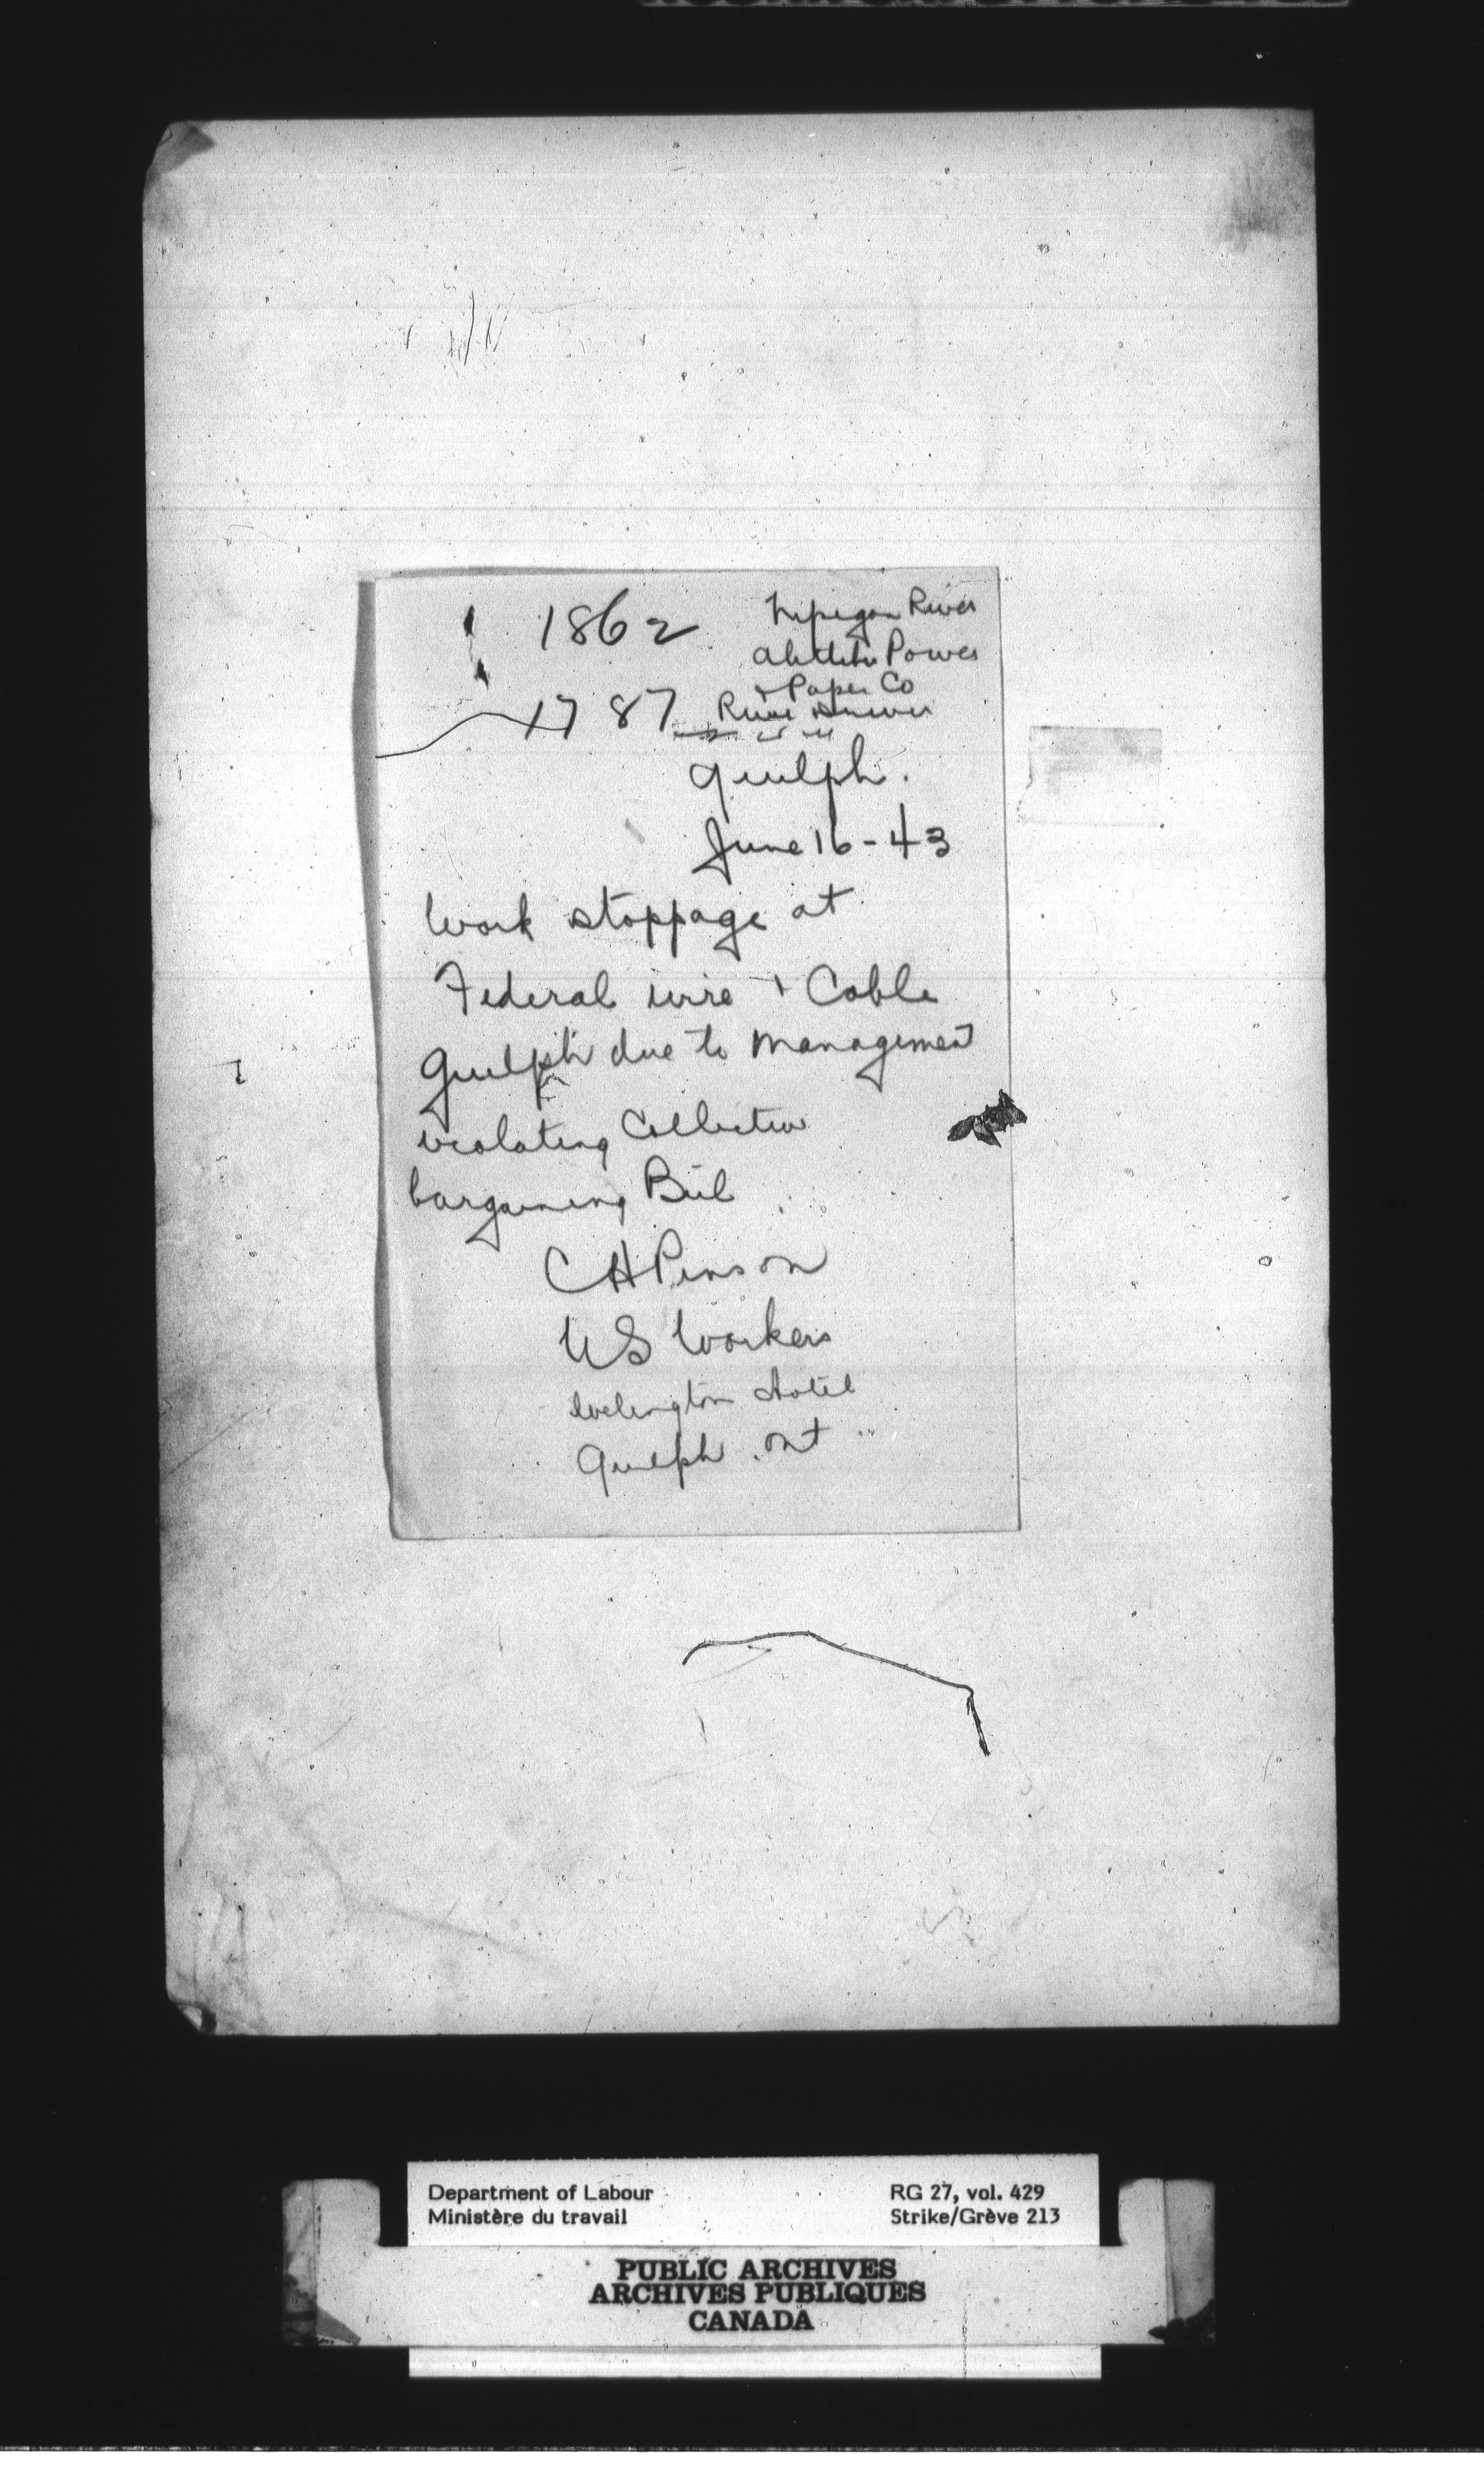 1862 Nipigon River
Abitibi Power
& Paper Co
1787 River
Guelph.
June 16-43
Work stoppage at
Federal wire & Cable
Guelph due to Management
violating Collective
bargaining Bill
C H Pinson
US Workers
Welington Hotel
Guelph . Ont
Department of Labour
Ministère du travail
RG 27, vol. 429
Strike/Grève 213
PUBLIC ARCHIVES
ARCHIVES PUBLIQUES
CANADA